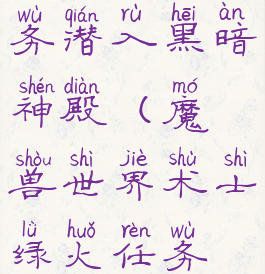 wù qián rù hēi àn
务潜入黑暗
shén diàn mó
神殿（魔
shòu shì jiè shù shì
兽世界术士
lǜ huǒ rèn wù
绿火任务